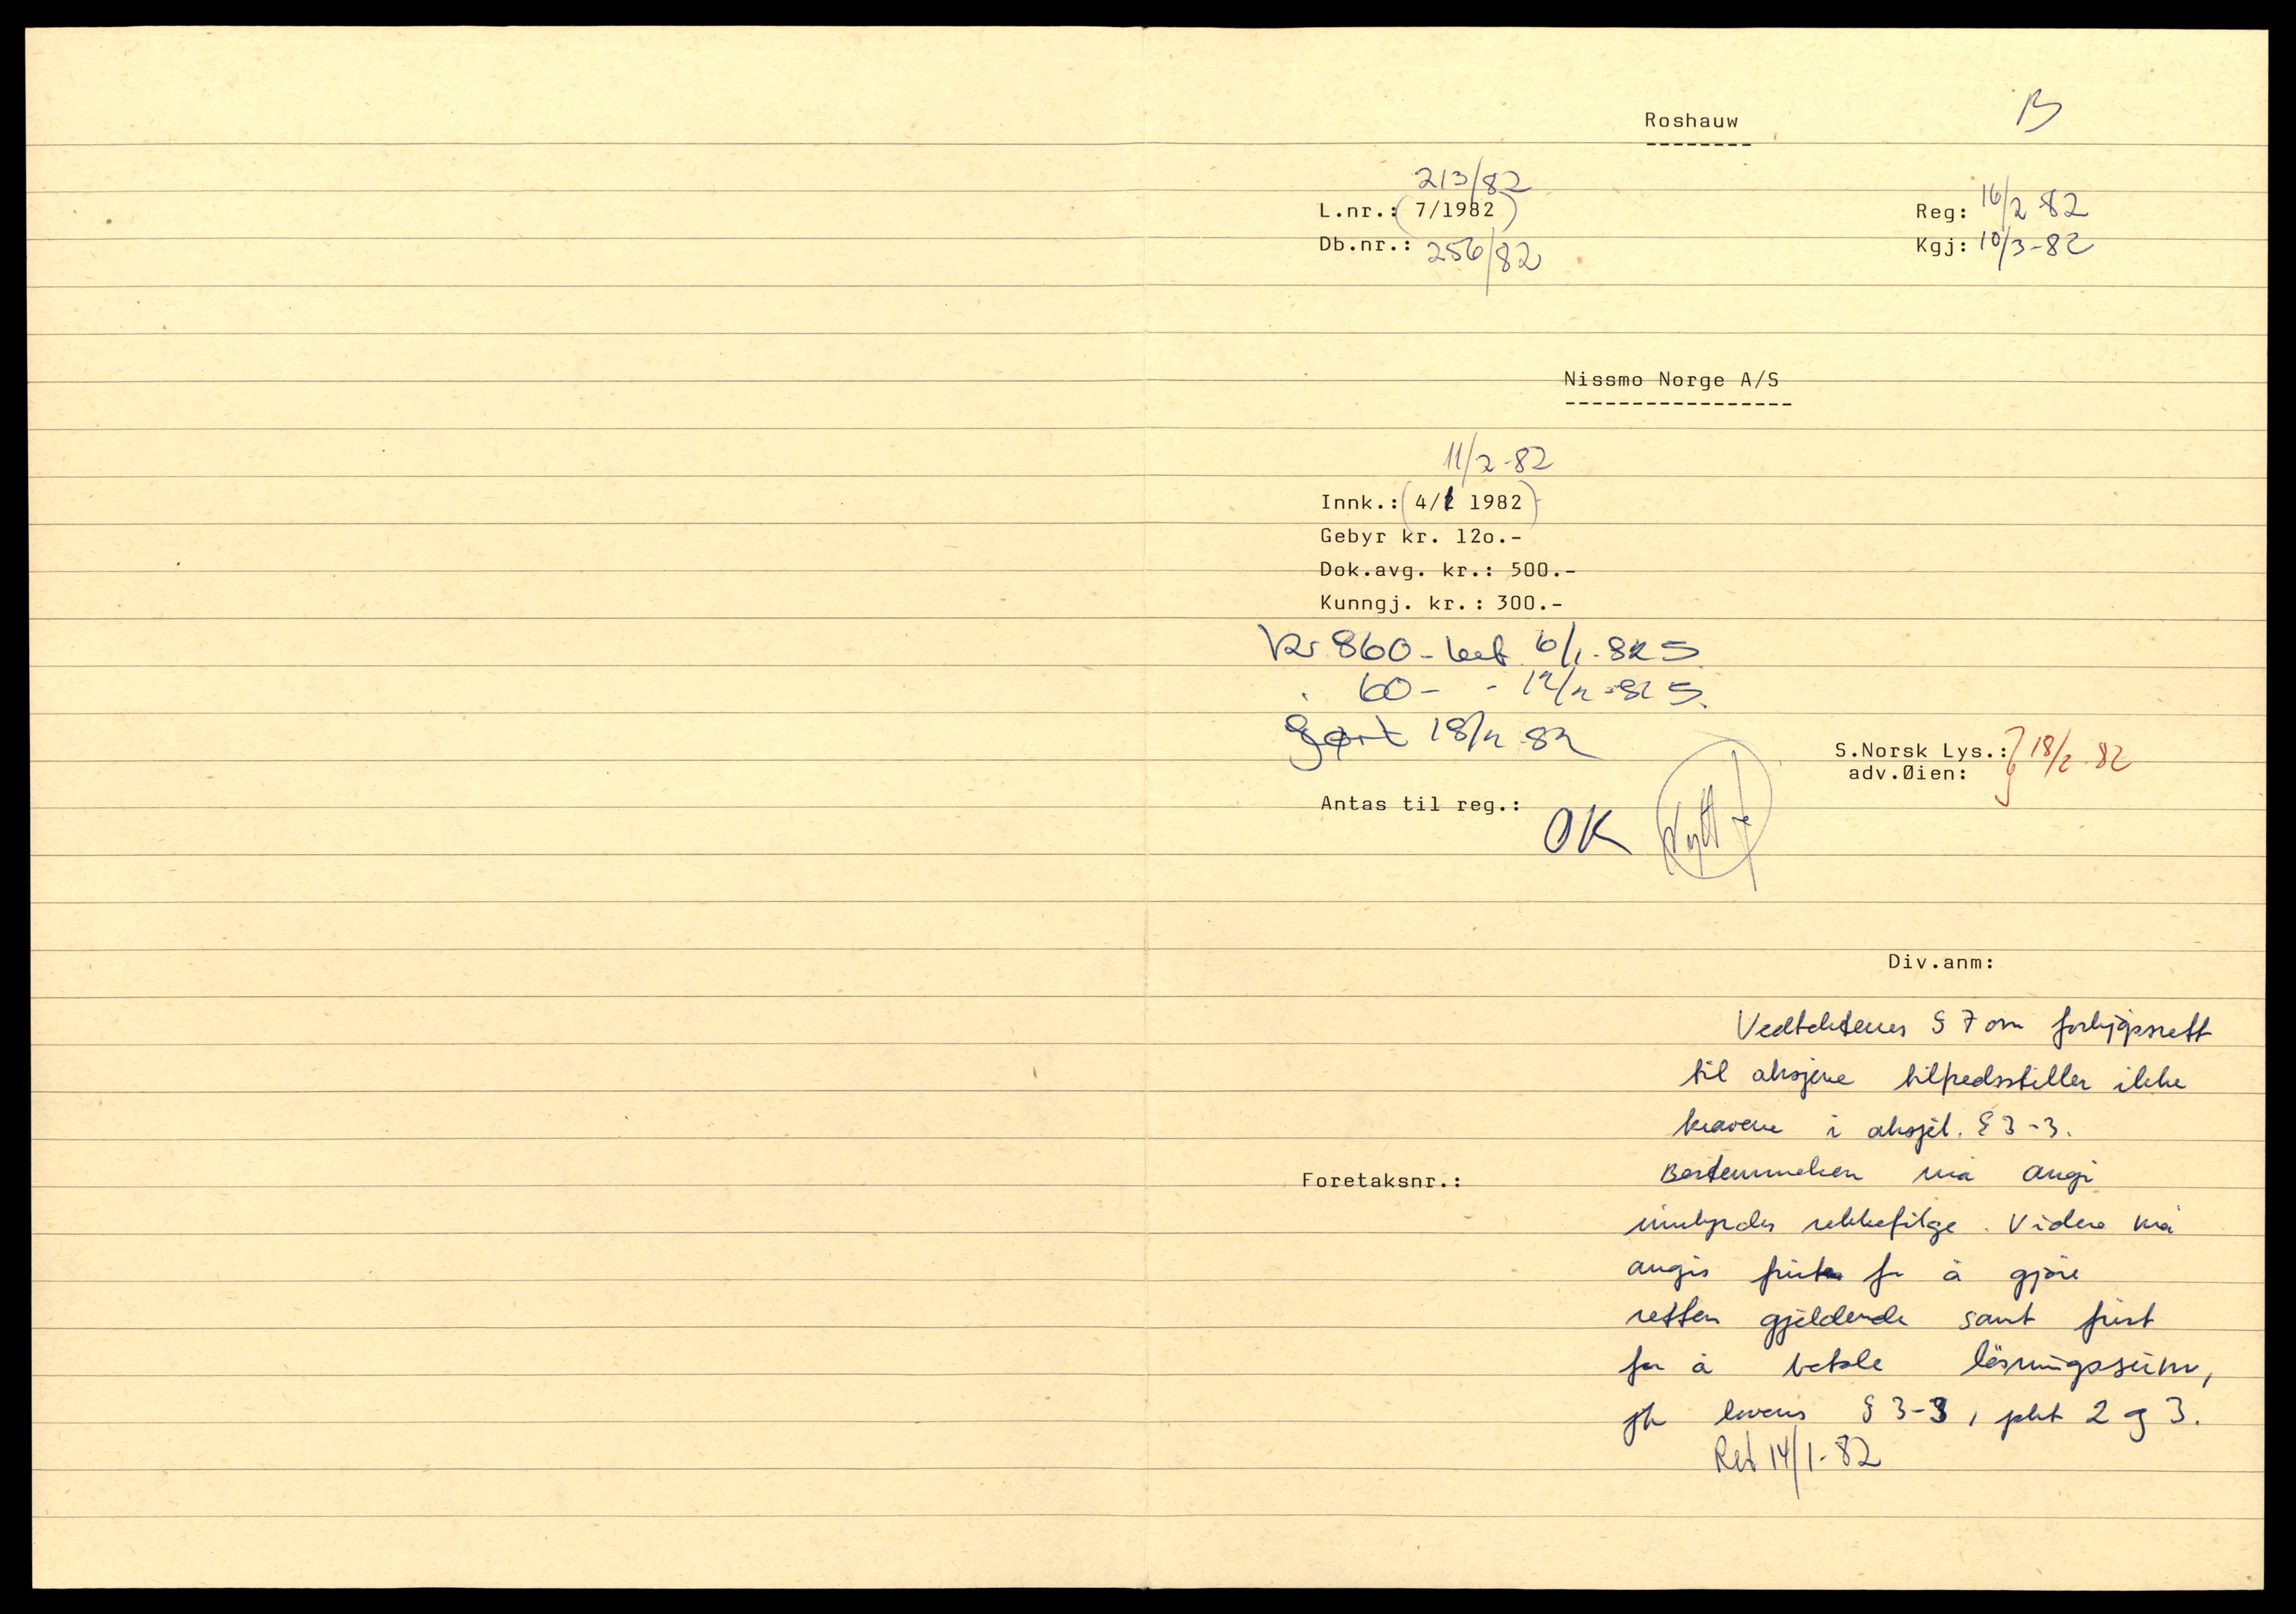 Roshauw
B
213/82
L.nr.: (7/1982)
Reg: 16/2 82
Db.nr.: 256/82
Kgj: 10/3-82
Nissmo Norge A/S
11/2-82
Innk.: (4/1 1982)
Gebyr kr. 12o.-
Dok.avg. kr.: 500.-
Kunngj. kr.: 300.-
Kr 860- bet 6/1-82 S
60- - 12/2-82 S.
gørt 18/2 82
S.Norsk Lys.: } 18/2 82
adv.Øien:
Antas til reg.:
OK
Div.anm:
Vedtektenes § 7 om forkjøpsrett
til aksjene tilfredsstiller ikke
kravene i aksjel. § 3-3.
Foretaksnr.:
Bestemmelsen må angi
innbyrdes rekkefølge. Videre må
angis frist for å gjøre
retten gjeldende samt frist
for å betale løsningssum,
jfr lovens § 3-3, pkt 2 og 3.
Ret 14/1-82